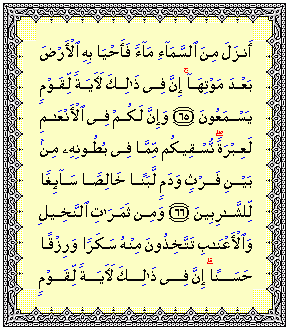 أَنزَلَ مِنَ ٱلسَّمَآءِ مَآءً فَأَحْيَا بِهِ ٱلْأَرْضَ
بَعْدَ مَوْتِهَآ ۚ إِنَّ فِى ذَٰلِكَ لَءَايَةً لِّقَوْمٍ
يَسْمَعُونَ ﴿٦٥﴾ وَإِنَّ لَكُمْ فِى ٱلْأَنْعَٰمِ
لَعِبْرَةً ۖ نُّسْقِيكُم مِّمَّا فِى بُطُونِهِۦ مِنۢ
بَيْنِ فَرْثٍ وَدَمٍ لَّبَنًا خَالِصًا سَآئِغًا
لِّلشَّٰرِبِينَ ﴿٦٦﴾ وَمِن ثَمَرَٰتِ ٱلنَّخِيلِ
وَٱلْأَعْنَٰبِ تَتَّخِذُونَ مِنْهُ سَكَرًا وَرِزْقًا
حَسَنًا ۗ إِنَّ فِى ذَٰلِكَ لَءَايَةً لِّقَوْمٍ